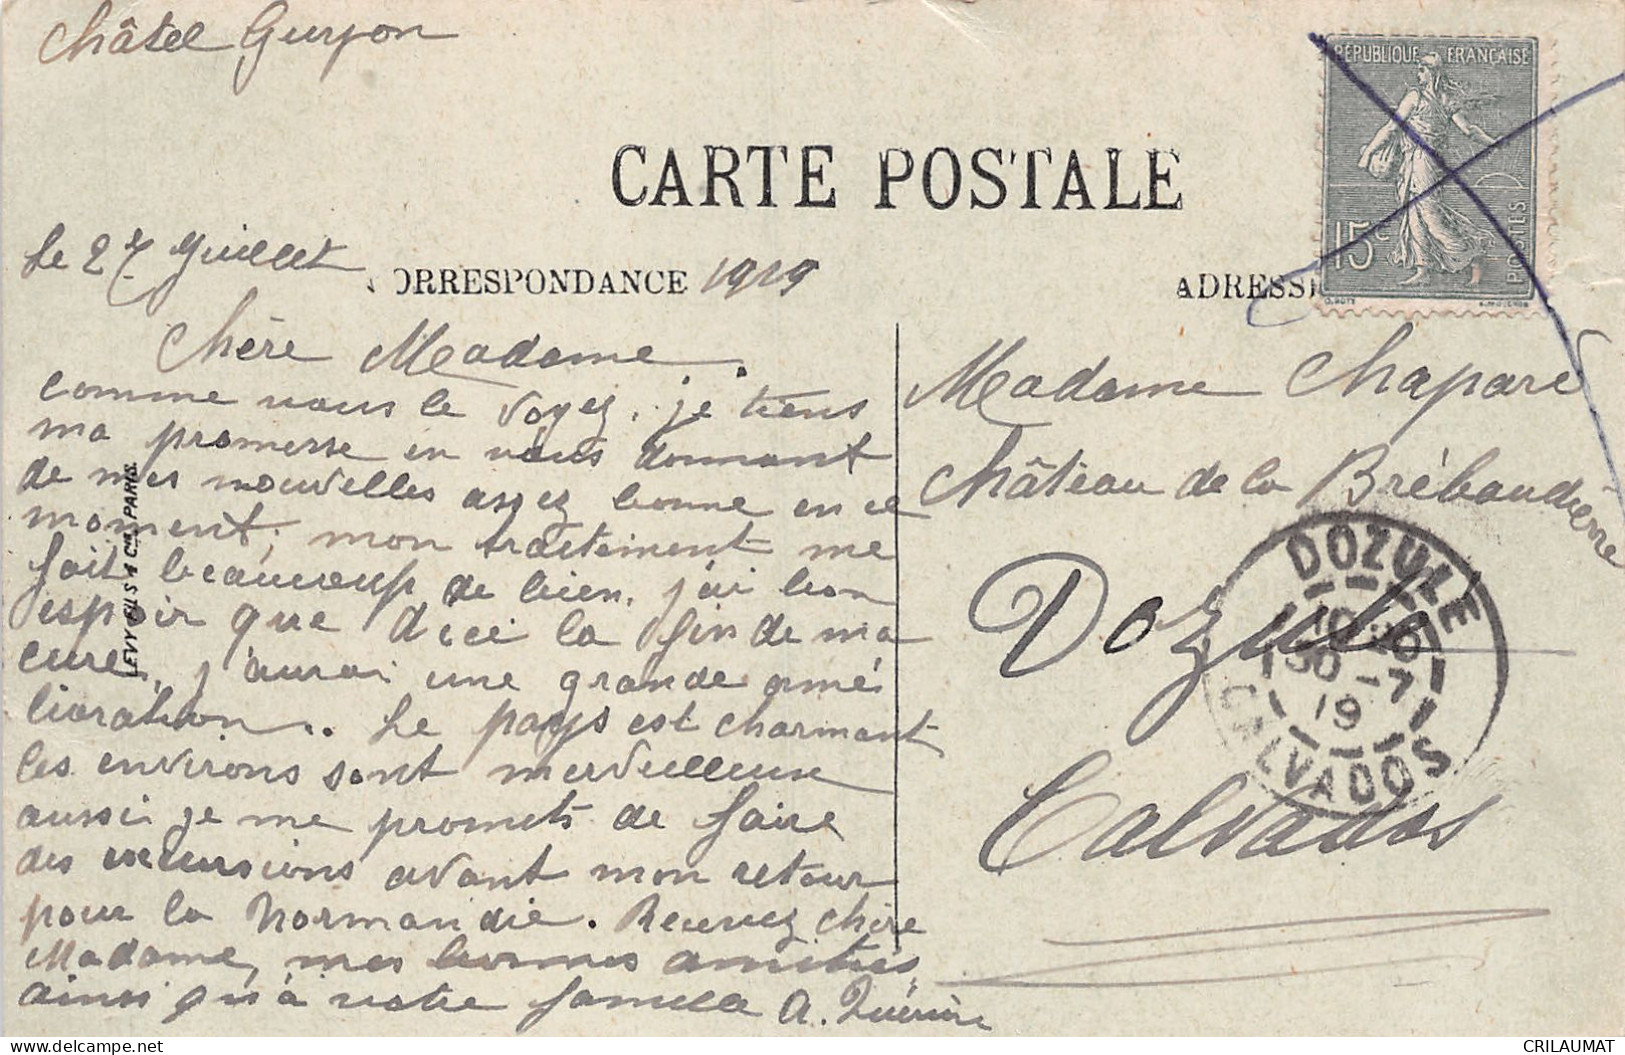 Châtel Guyon
RÉPUBLIQUE FRANÇAISE
15c
POSTES
CARTE POSTALE
Le 27 Juillet 1919
CORRESPONDANCE
ADRESSE
Chère Madame.
comme vous le voyez, je tiens
ma promesse en vous donnant
de mes nouvelles assez bonne en ce
moment; mon traitement me
fait beaucoup de bien, j'ai bon
espoir que d'ici la fin de ma
cure, j'aurai une grande amé
lioration. Le pays est charmant
les environs sont merveilleuse
aussi je me promets de faire
des excursions avant mon retour
pour la Normandie. Recevez chère
Madame, mes bonnes amitiés
ainsi qu'à votre famille A. 
LEVY FILS & Cie PARIS.
Madame Chaparé
Château de la Brébaudière
Dozulé
Calvados
DOZULE
30 -7
19
CALVADOS
delcampe.net
CRILAUMAT